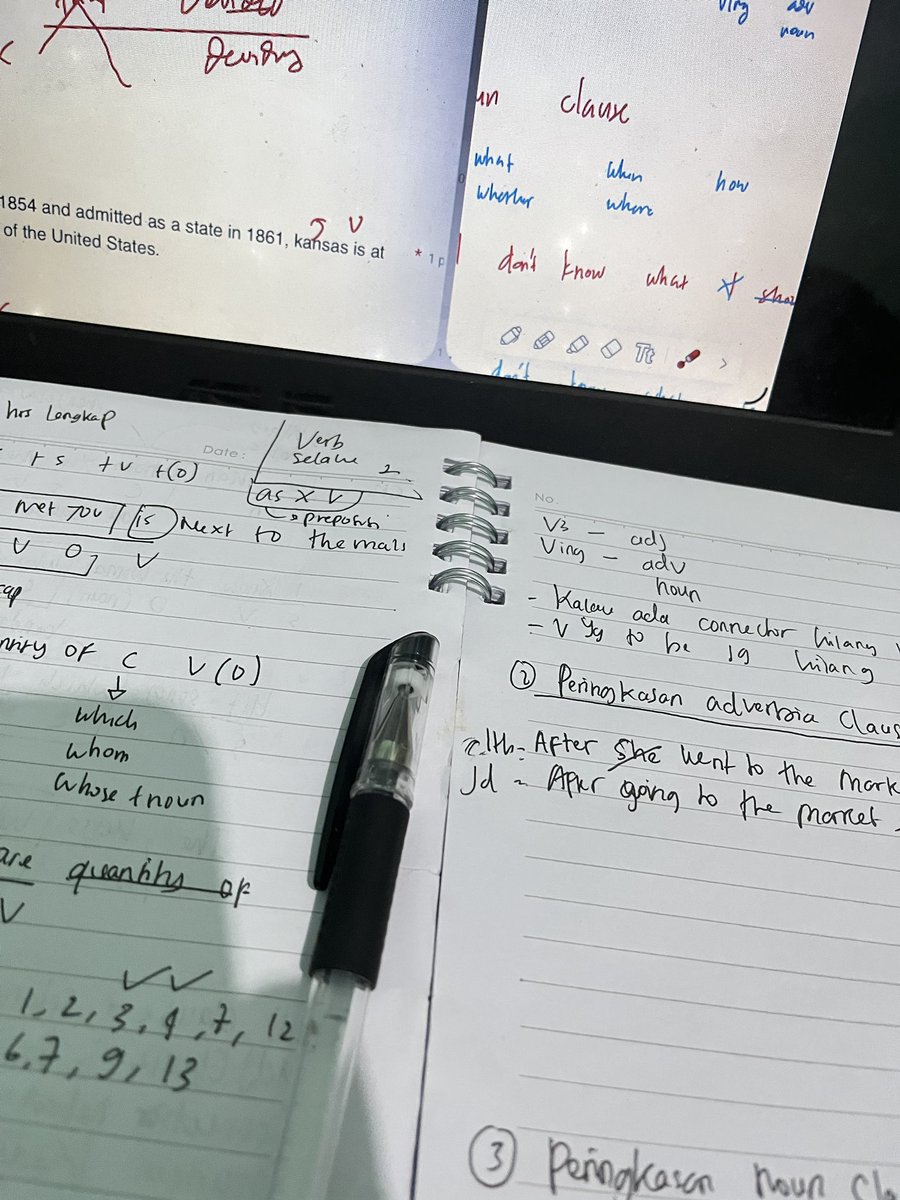 Density
1854 and admitted as a state in 1861, kansas is at
of the United States.
S V
* 1 p
Ving adv
noun
un clause
what when how
whether where
don't know what
Tt
don't
hrs Lengkap
Date:
+ s + v + (o)
Verb
selalu 2
as x v
preposisi
met you is Next to the mals
V O V
OF C V (O)
which
whom
whose + noun
are quantity of
V
1, 2, 3, 4, 7, 12
6, 7, 9, 13
No.
V3 - adj
Ving - adv
noun
- Kalau ada connector hilang
- V yg to be jg hilang
② Peringkasan adverbia Claus
After she went to the mark
Jd = After going to the market
③ Peringkasan noun cla